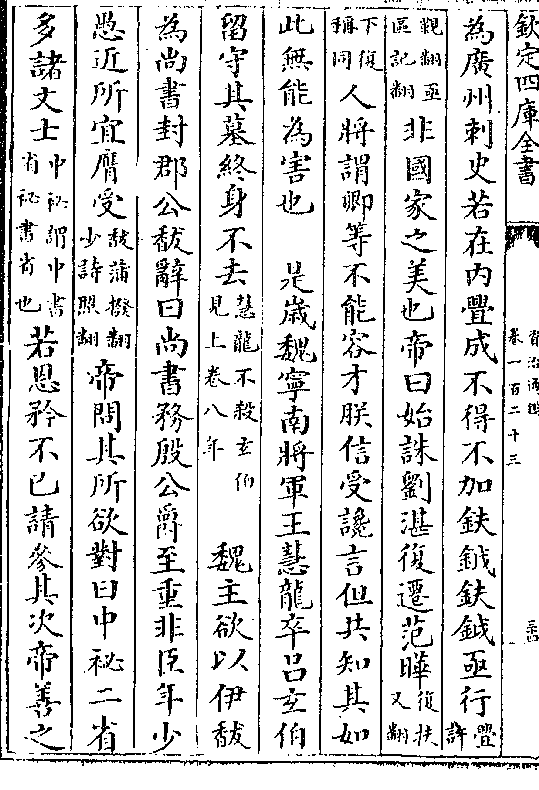 欽定四庫全書
資治通鑑
卷一百二十三
為廣州刺史若在內釁成不得不加鈇鉞鈇鉞亟行釁許
覲翻亟區記翻非國家之美也帝曰始誅劉湛復遷范曄復扶又翻
下復稱同人將謂卿等不能容才朕信受讒言但共知其如
此無能為害也 是歲魏寧南將軍王慧龍卒呂玄伯
留守其墓終身不去慧龍不殺玄伯見上卷八年 魏主欲以伊馛
為尚書封郡公馛辭曰尚書務殷公爵至重非臣年少
愚近所宜膺受馛蒲撥翻少詩照翻帝問其所欲對曰中祕二省
多諸文士中祕謂中書省祕書省也若恩矜不已請參其次帝善之